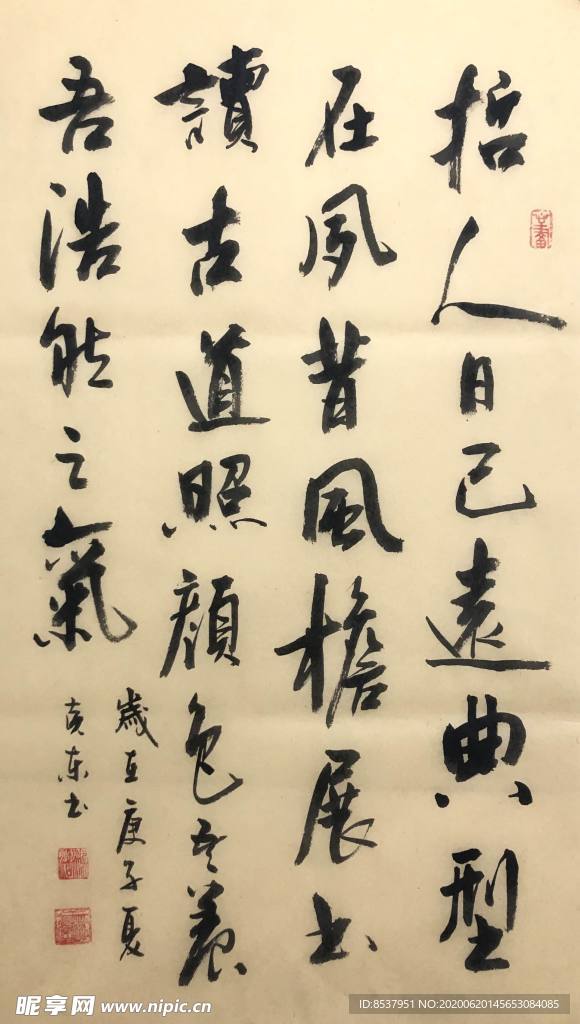 哲人日已遠典型
在夙昔風檐展书
讀古道照顏色吾養
吾浩然之氣
歲在庚子夏
东书
昵享网 www.nipic.cn
ID:8537951 NO:20200620145653084085